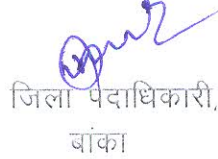 जिला पदाधिकारी,
बांका